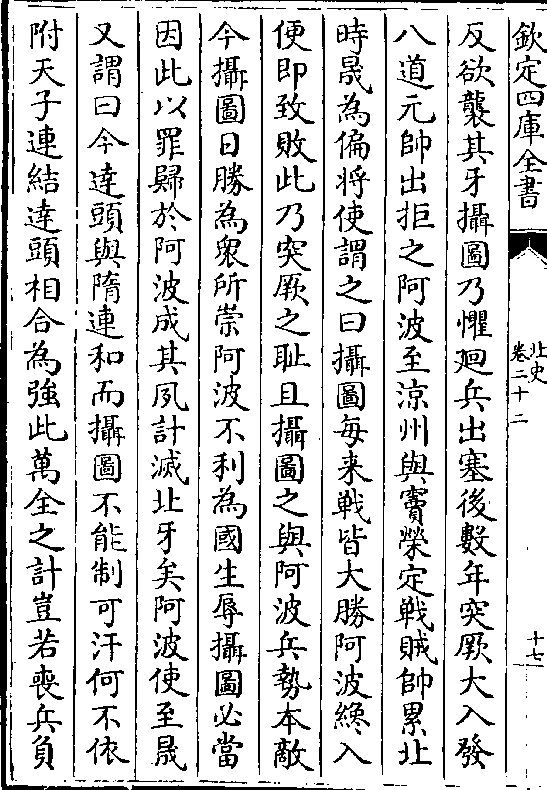 欽定四庫全書
北史
卷二十二
十七
反欲襲其牙攝圖乃懼廻兵出塞後數年突厥大入發
八道元帥出拒之阿波至涼州與竇榮定戰賊帥累北
時晟為偏將使謂之曰攝圖每来戰皆大勝阿波纔入
便即致敗此乃突厥之耻且攝圖之與阿波兵勢本敵
今攝圖日勝為衆所崇阿波不利為國生辱攝圖必當
因此以罪歸於阿波成其夙計滅北牙矣阿波使至晟
又謂曰今達頭與隋連和而攝圖不能制可汗何不依
附天子連結達頭相合為強此萬全之計豈若喪兵負